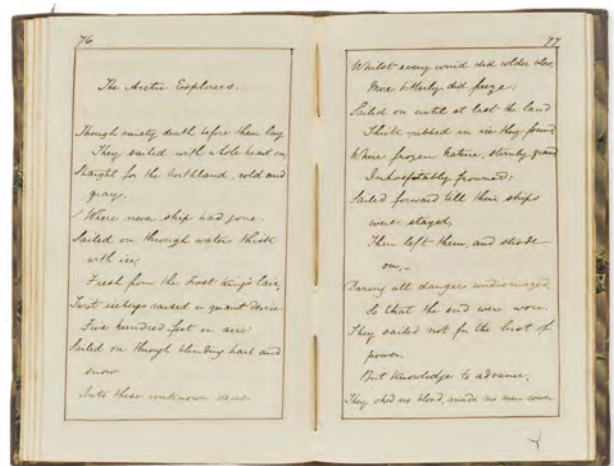 76
The Arctic Explorers.
Though misty death before them lay
They sailed with whole heart on,
Straight for the Northland, cold and
gray,
Where never ship had gone.
Sailed on through waters thick
with ice,
Fresh from the Frost King's lair,
Twixt icebergs raised in quaint device
Five hundred feet in air:
Sailed on through blinding hail and
snow
Into these unknown seas
77
Whilst every wind did colder blow,
More bitterly did freeze:
Sailed on until at last the land
Thick-ribbed in ice they found,
Where frozen Nature, sternly grand
Inhospitably frowned:
Sailed forward till their ships
were stayed,
Then left them, and strode
on,–
Daring all dangers undismayed,
So that the end were won.
They sailed not for the lust of
power,
But knowledge to advance,
They shed no blood, made no men cower